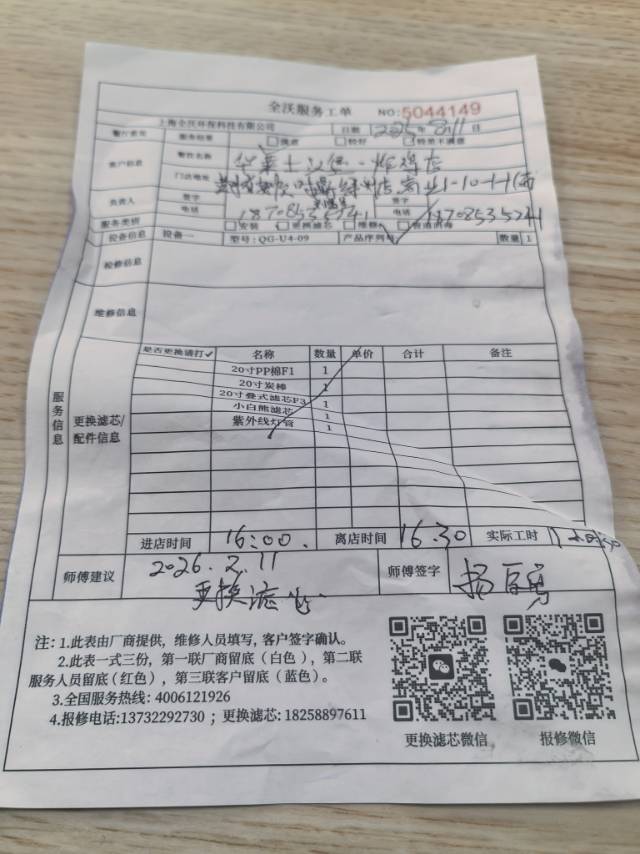 全沃服务工单 NO:5044149
上海全沃环保科技有限公司 日期 2025年8月11日
餐厅意见 服务结果 满意 较好 特别不满意
客户信息 餐性名称 华莱士汉堡·炸鸡店
门店地址
负责人 签字 签字
电话 18708535241 电话 18708535241
服务类别 安装 更换滤芯 维修 管道消毒
设备信息 设备一 型号:QG-U4-09 产品序列号 数量 1
检修信息
维修信息
服务信息
更换滤芯/配件信息
是否更换请打✓ 名称 数量 单价 合计 备注
20寸PP棉F1 1
20寸炭棒 1
20寸叠式滤芯F3 1
小白熊滤芯 1
紫外线灯管 1
进店时间 16:00 离店时间 16.30 实际工时
师傅建议 2026.2.11 师傅签字
更换滤芯
注:1.此表由厂商提供,维修人员填写,客户签字确认。
2.此表一式三份,第一联厂商留底(白色),第二联
服务人员留底(红色),第三联客户留底(蓝色)。
3.全国服务热线: 4006121926
4.报修电话:13732292730 ; 更换滤芯: 18258897611
更换滤芯微信 报修微信